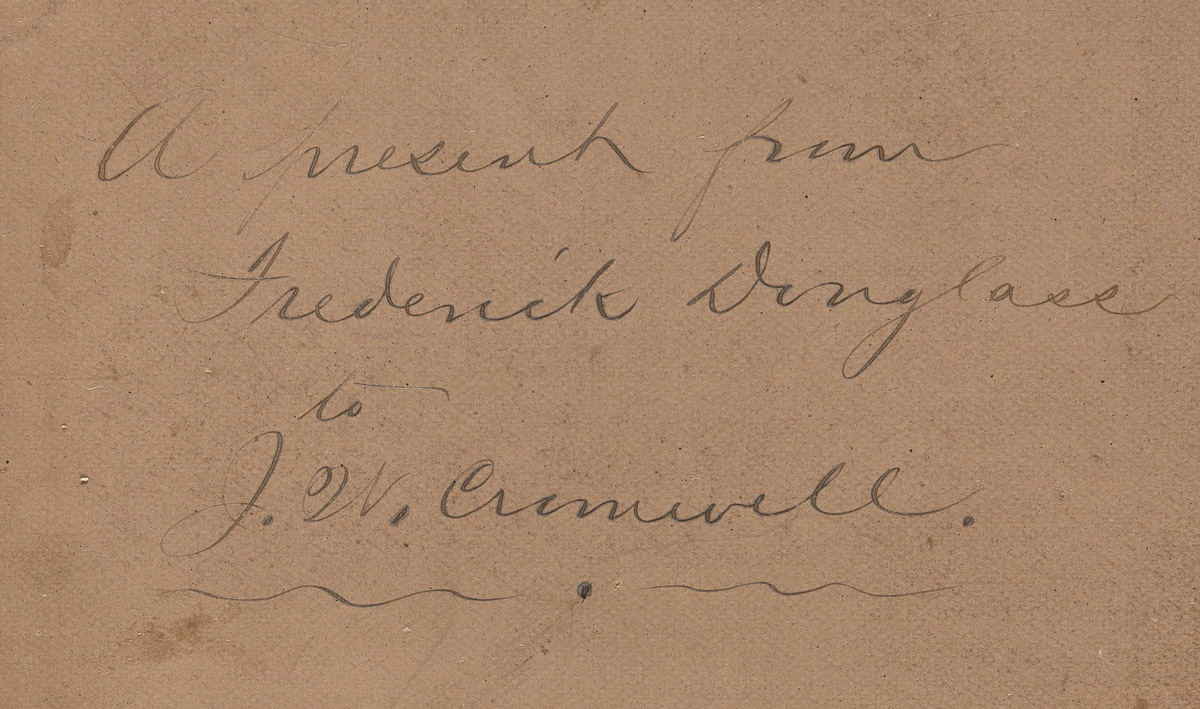 A present from
Frederick Douglass
to
J. W. Cromwell.